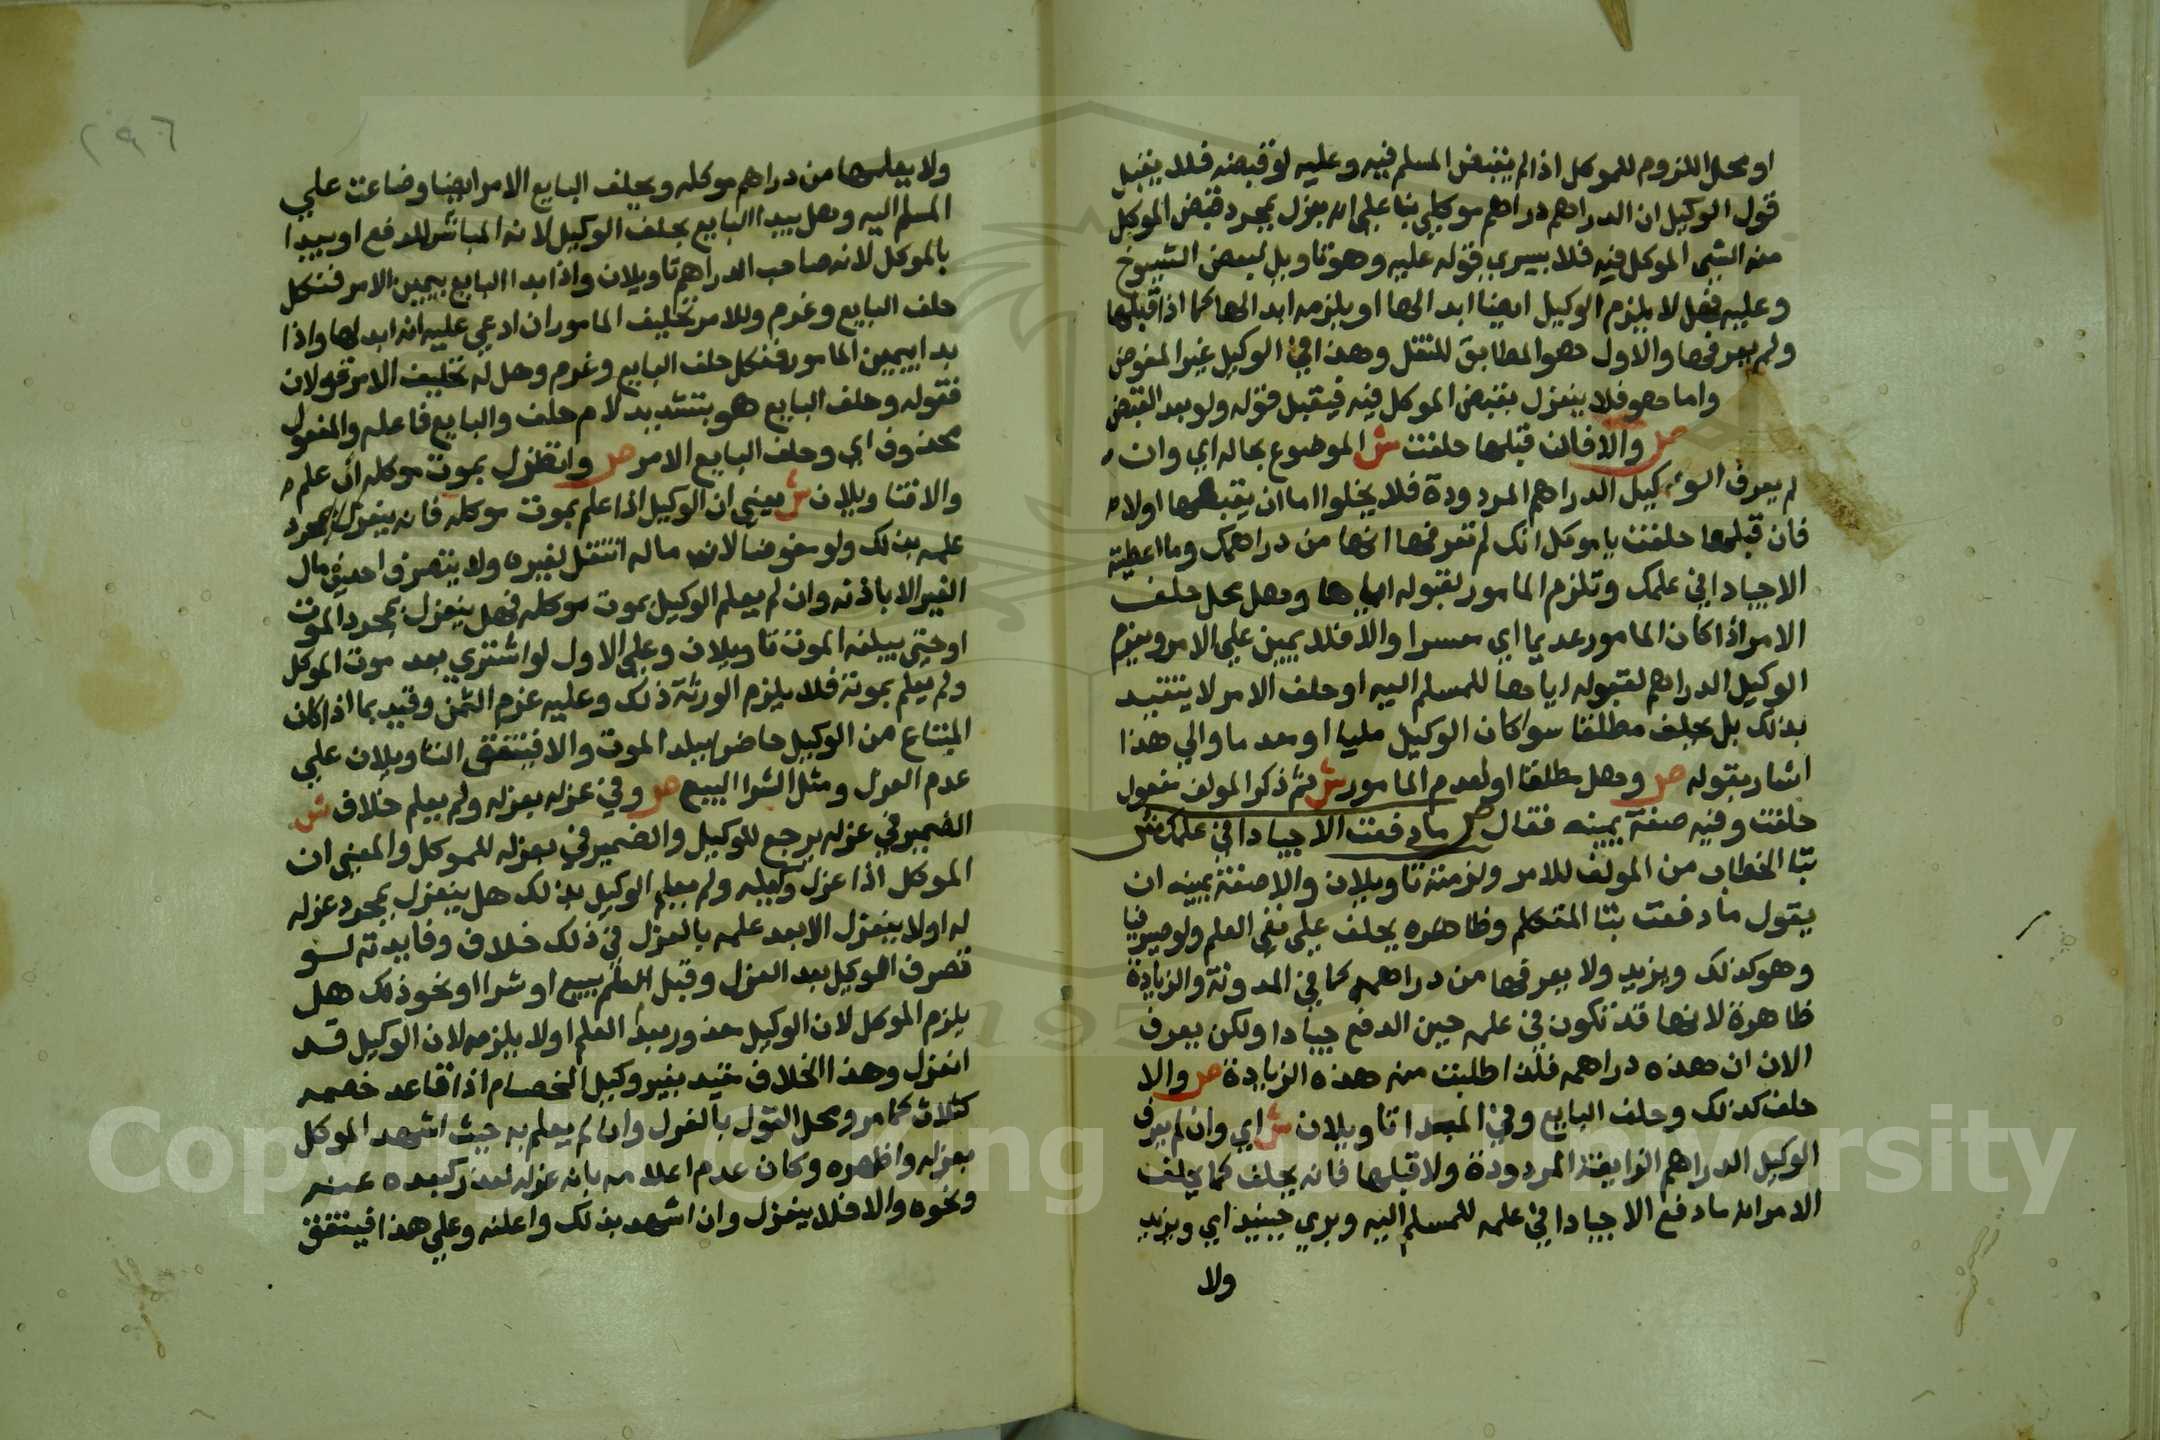 او محل اللزوم للموكل اذا لم يقبض المسلم فيه وعليه لو قبضه فلا يقبل
قول الوكيل ان الدراهم دراهم موكلي بنا على انه يعزل بمجرد قبض الموكل
منه الشي الموكل فيه فلا يسري قوله عليه وهو تاويل لبعض الشيوخ
وعليه فهل لا يلزم الوكيل ايضا ابدالها او يلزمه ابدالها كما اذا قبلها
ولم يعرفها والاول هو المطابق للنقل وهذا في الوكيل غير المفوض
واما هو فلا ينعزل بقبض الموكل فيه فيقبل قوله ولو بعد القبض
ص والا فان قبلها حلفت ش الموضوع بحاله اي وان
لم يعرف الوكيل الدراهم المردودة فلا يخلوا اما ان يقبلها اولا
فان قبلها حلفت يا موكل انك لم تعرفها انها من دراهمك وما اعطيته
الا جيادا في علمك وتلزم المامور لقبوله اياها وهل محل حلف
الامر اذا كان المامور عديما اي معسرا والا فلا يمين علي الامر ويغرم
الوكيل الدراهم لقبوله اياها للمسلم اليه او حلف الامر لا يتقيد
بذلك بل يحلف مطلقا سوا كان الوكيل مليا او معدما والي هذا
اشار بقوله ص وهل مطلقا او لعدم المامور ش ثم ذكر المولف مفعول
حلفت وفيه صفة يمينه فقال ص ما دفعت الا جيادا في علمك ش
بتا الخطاب من المولف للامر ولزمته تاويلان والا صفة يمينه ان
يقول ما دفعت بتا المتكلم وظاهره يحلف علي نفي العلم ولو صيرفيا
وهو كذلك ويزيد ولا يعرفها من دراهمه كما في المدونة والزيادة
ظاهرة لانها قد تكون في علمه حين الدفع جيادا ولكن يعرف
الان ان هذه دراهمه فلذا طلبت منه هذه الزيادة ص والا
حلف كذلك وحلف البايع وفي المبدا تاويلان ش اي وان لم يعرف
الوكيل الدراهم الزايفة المردودة ولا قبلها فانه يحلف كما يحلف
الامر انه ما دفع الا جيادا في علمه للمسلم اليه وبري حينيذ اي ويزيد
ولا
٢٩٦
ولا يعلمها من دراهم موكله ويحلف البايع الامر ايضا وضاعت علي
المسلم اليه وهل يبدا البايع بحلف الوكيل لانه المباشر للدفع او يبدا
بالموكل لانه صاحب الدراهم تاويلان واذا بدا البايع بيمين الامر فنكل
حلف البايع وغرم وللامر تحليف المامور ان ادعي عليه انه ابدلها واذا
بدا بيمين المامور فنكل حلف البايع وغرم وهل له تحليف الامر قولان
فقوله وحلف البايع هو بتشديد لام حلف والبايع فاعله والمفعول
محذوف اي وحلف البايع الامر ص وانعزل بموت موكله ان علم
والا فتاويلان ش يعني ان الوكيل اذا علم بموت موكله فانه ينعزل بمجرد
علمه بذلك ولو مفوضا لان ماله انتقل لغيره ولا يتصرف احد في مال
الغير الا باذنه وان لم يعلم الوكيل بموت موكله فهل ينعزل بمجرد الموت
او حتي يبلغه الموت تاويلان وعلي الاول لو اشتري بعد موت الموكل
ولم يعلم بموته فلا يلزم الورثة ذلك وعليه غرم الثمن وقيد بما اذا كان
المبتاع من الوكيل حاضرا ببلد الموت والا فيتفق التاويلان علي
عدم العزل ومثل الشرا البيع ص وفي عزله بعزله ولم يعلم خلاف ش
الضمير في عزله يرجع للوكيل والضمير في بعزله للموكل والمعني ان
الموكل اذا عزل وكيله ولم يعلم الوكيل بذلك هل ينعزل بمجرد عزله
له او لا ينعزل الا بعد علمه بالعزل في ذلك خلاف وفايدته لو
تصرف الوكيل بعد العزل وقبل العلم ببيع او شرا او نحو ذلك هل
يلزم الموكل لان الوكيل معذور بعدم العلم او لا يلزمه لان الوكيل قد
انعزل وهذا الخلاف مقيد بغير وكيل الخصام اذا قاعد خصمه
كثلاث كما مر ومحل القول بالعزل وان لم يعلم به حيث اشهد الموكل
بعزله واظهره وكان عدم اعلامه بانه عزله لعذر كبعده عنه
ونحوه والا فلا ينعزل وان اشهد بذلك واعلنه وعلي هذا فيتفق
Copyright © King Saud University
1957